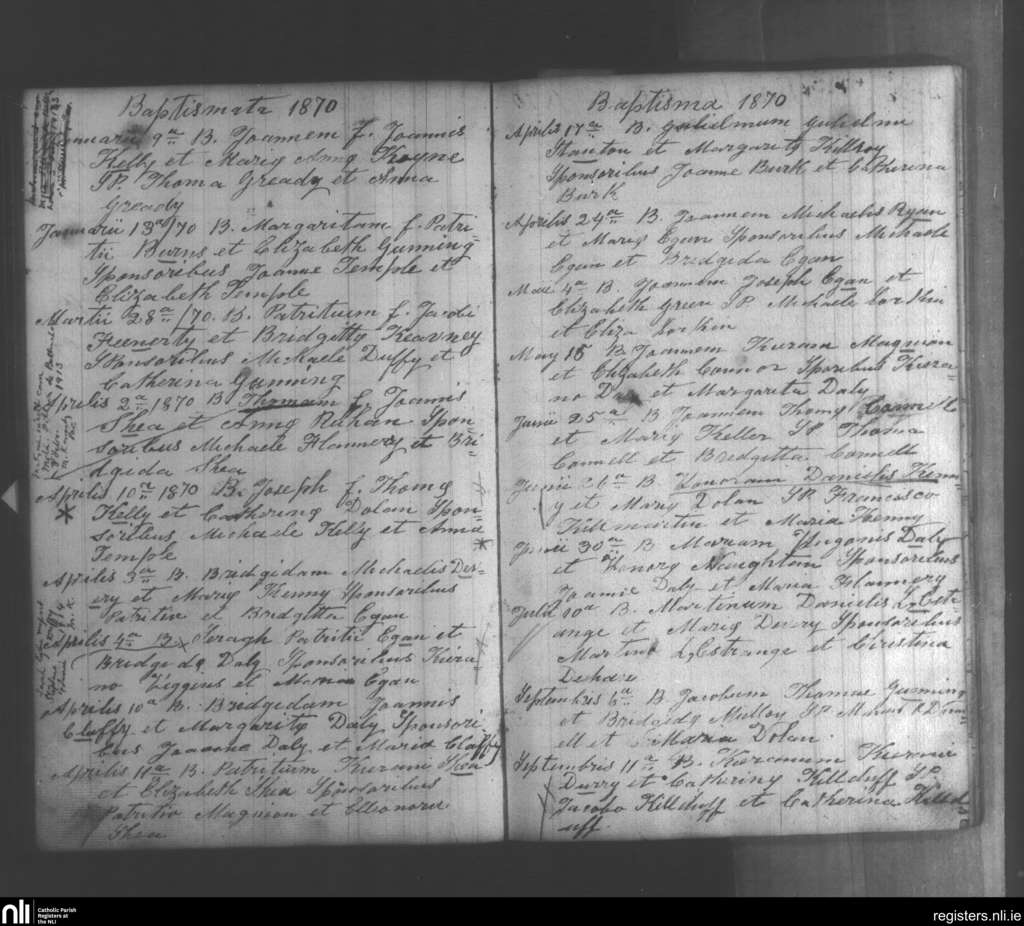 Baptismata 1870
Januarii 9a B. Joannem f. Joannis
Kelly et Mariæ Annæ Koyne
SP. Thoma Gready et Anna
Gready
Januarii 13a/70 B. Margaritam f. Patri-
tii Burns et Elizabeth Gunning
Sponsoribus Joanne Temple et
Elizabeth Temple
Martii 28a/70. B. Patritium f. Jacobi
Feenerty et Bridgittæ Kearney
Sponsoribus Mickaele Duffy et
Catherina Gunning
Aprilis 2a 1870 B Thomam f. Joannis
Shea et Annæ Ruhan Spon-
soribus Michaele Flannery et Bri
dgida Shea
Aprilis 10a 1870 B. Joseph f. Thomæ
Kelly et Catherinæ Dolan Spon-
soribus Michaele Kelly et Anna
Temple
Aprilis 3a B. Bridgidam Michaelis Der-
ery et Mariæ Kenny Sponsoribus
Patritio et Bridgitta Egan
Aprilis 4a B. Saragh Patritii Egan et
Bridgidæ Daly Sponsoribus Kiera
no Higgins et Maria Egan
Aprilis 10a B. Bridgidam Joannis
Claffy et Margaritæ Daly Sponsori
bus Joanne Daly et Maria Claffy
Aprilis 11a B. Patritium Kierani Shea
et Elizabeth Shea Sponsoribus
Patritio Magnion et Elleonora
Shea
Baptisma 1870
Aprilis 17a B. Gulielmum Gulielmi
Stanton et Margaritæ Killroy
Sponsoribus Joanne Burk et Catherina
Burk
Aprilis 24a B. Joannem Michaelis Ryan
et Mariæ Egan Sponsoribus Michaele
Egan et Bridgida Egan
Maii 4a B. Joannem Joseph Egan et
Elizabeth Green SP. Michaele Corkin
et Eliza Corken
May 15 B Joannem Kieran Magnion
et Elizabeth Connor Sporibus Kiera-
no Daly et Margarita Daly
Junii 25a B Joannem Thomæ Connell
et Mariæ Keller SP Thoma
Connell et Bridgitta Connell
Junii 26a B Honoram Danielis Kenn-
y et Mariæ Dolan SP. Francisco
Kilmartin et Maria Kenny
Junii 30a B Mariam Hugonis Daly
et Honoræ Naughton Sponsoribus
Joanne Daly et Maria Flannery
Julii 10a B. Martinum Danielis L'Estr-
ange et Mariæ Deviry Sponsoribus
Martino L'Estrange et Cristina
Dehare
Septembris 6a B Jacobum Thomae Gunning
et Bridgidæ Mulloy SP
ell et Maria Dolan
Septembris 11a B. Kieranum Kierani
Durry et Catherinæ Killduff SP.
Jacobo Killduff et Catherina Killd
uff.
nli
Catholic Parish
Registers at
the NLI
registers.nli.ie